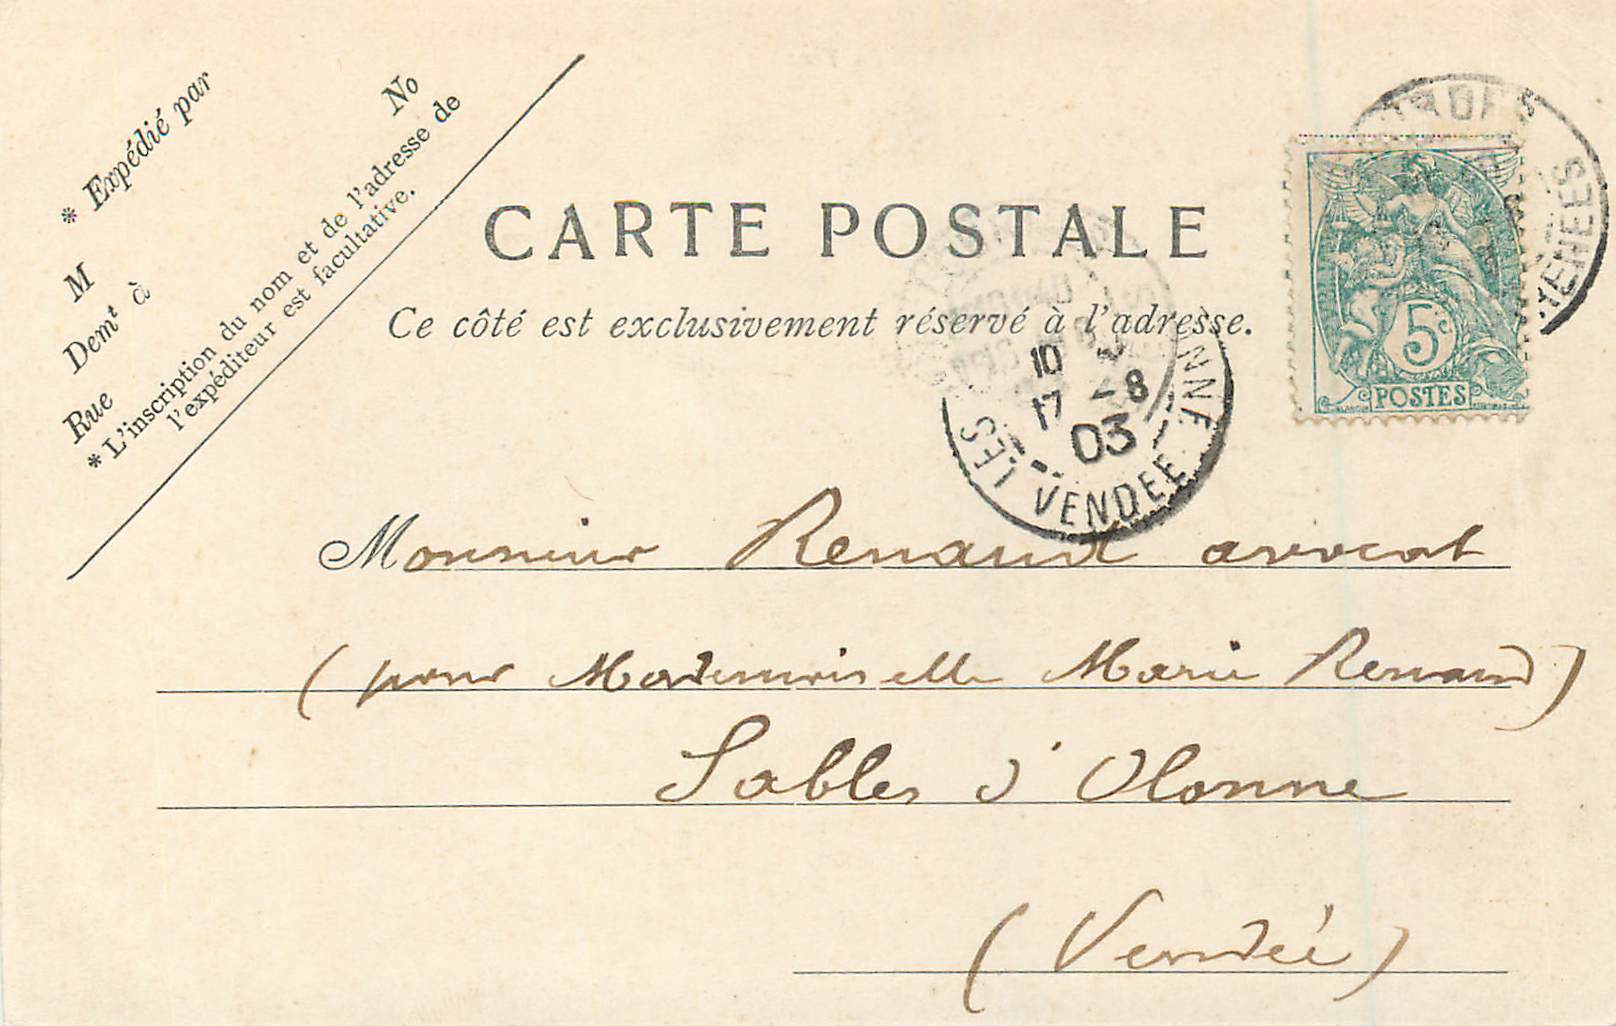 * Expédié par
M
Demt à
Rue
No
* L'inscription du nom et de l'adresse de
l'expéditeur est facultative.
CARTE POSTALE
Ce côté est exclusivement réservé à l'adresse.
5c
POSTES
10
17 -8
03
LES
VENDEE
NNE
Monsieur Renaud avocat
(pour Mademoiselle Marie Renaud)
Sables d'Olonne
(Vendée)